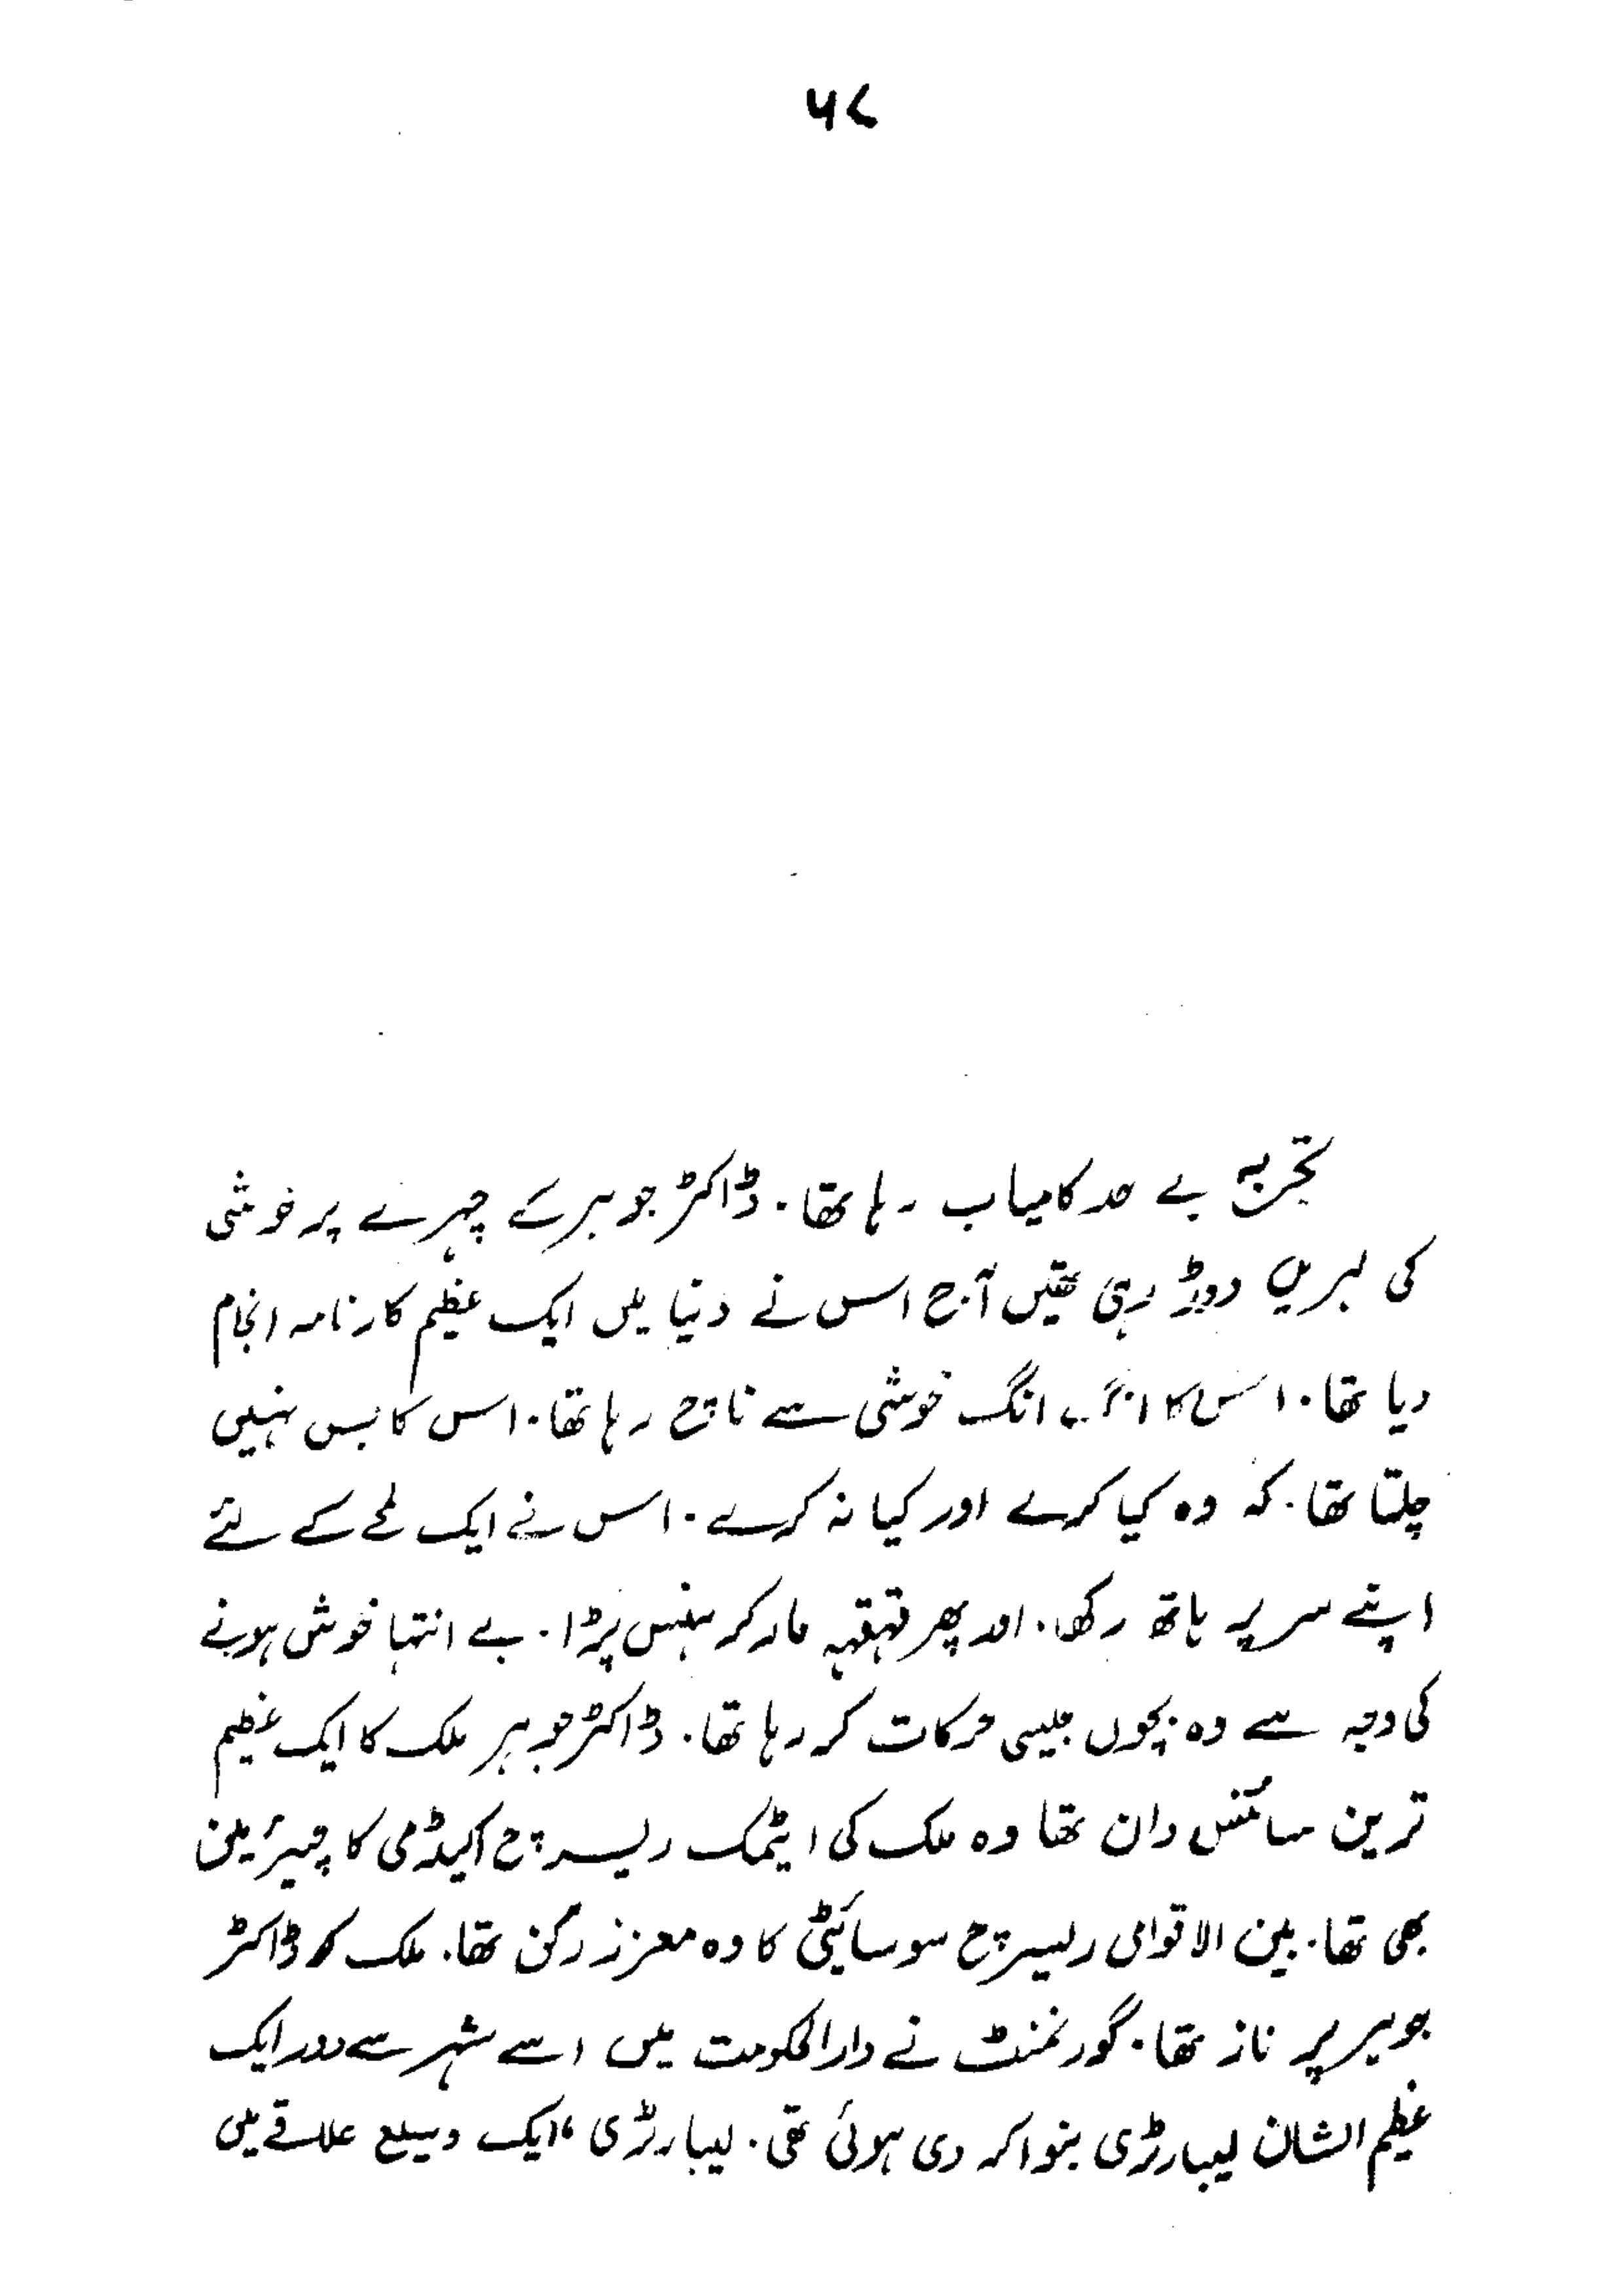 ۵۷
تجربہ بے حد کامیاب رہا تھا۔ ڈاکٹر جوہر کے چہرے پر خوشی
کی لہریں دوڑ رہی تھیں آج اس نے دنیا میں ایک عظیم کارنامہ انجام
دیا تھا۔ اس کا انگ انگ خوشی سے ناچ رہا تھا۔ اس کا بس نہیں
چلتا تھا۔ کہ وہ کیا کرے اور کیا نہ کرے۔ اس نے ایک لمحے کے لئے
اپنے سر پر ہاتھ رکھا۔ اور پھر قہقہہ مار کر ہنس پڑا۔ بے انتہا خوش ہونے
کی وجہ سے وہ بچوں جیسی حرکات کر رہا تھا۔ ڈاکٹر جوہر ملک کا ایک عظیم
ترین سائنس دان تھا وہ ملک کی ایٹمک ریسرچ اکیڈمی کا چیئرمین
بھی تھا۔ بین الاقوامی ریسرچ سوسائیٹی کا وہ معزز رکن تھا۔ ملک کو ڈاکٹر
جوہر پر ناز تھا۔ گورنمنٹ نے دارالحکومت میں اسے شہر سے دور ایک
عظیم الشان لیبارٹری بنوا کر دی ہوئی تھی۔ لیبارٹری ایک وسیع علاقے میں